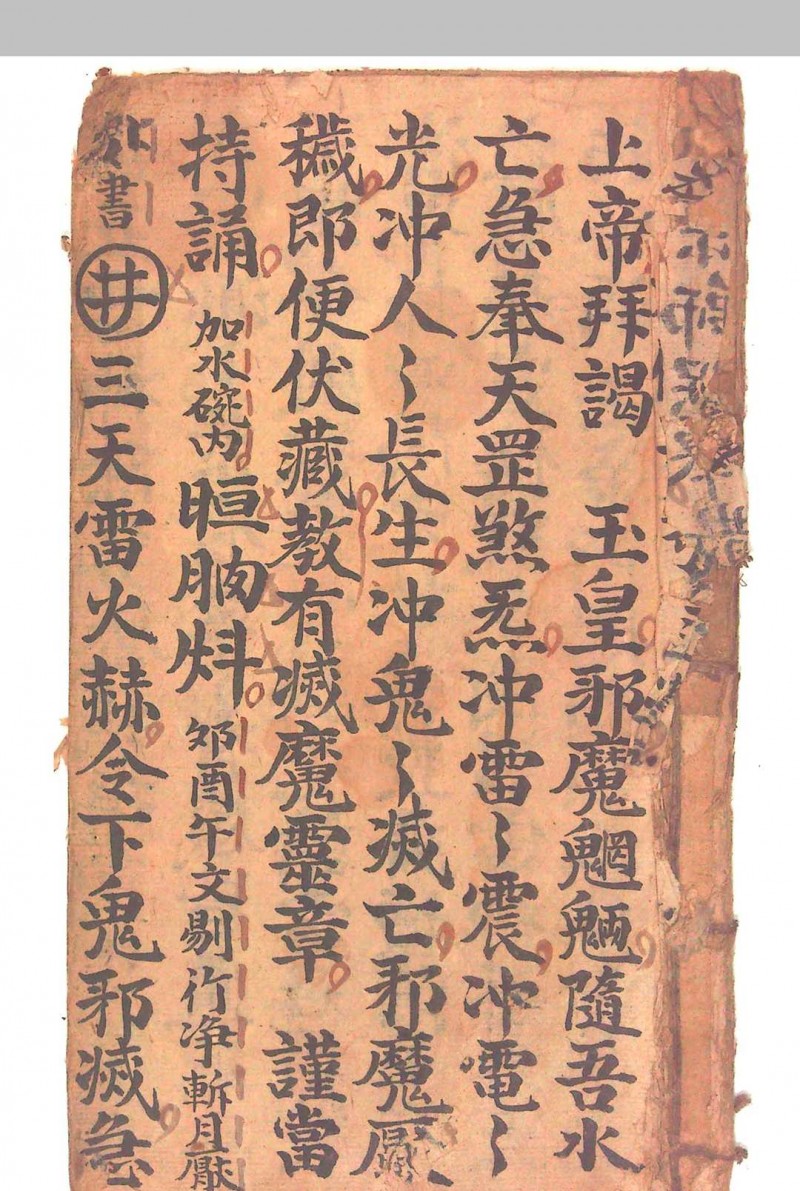 上帝拜謁 玉皇邪魔魍魎隨吾水
亡急奉天罡煞炁冲雷〻震冲電〻
光冲人〻長生冲鬼〻滅亡邪魔
穢即便伏藏教有滅魔靈章 謹當
持誦 加水碗内 晅朒炓 邜酉午文剔竹净斬
書 卄 三天雷火赫令下鬼邪滅急